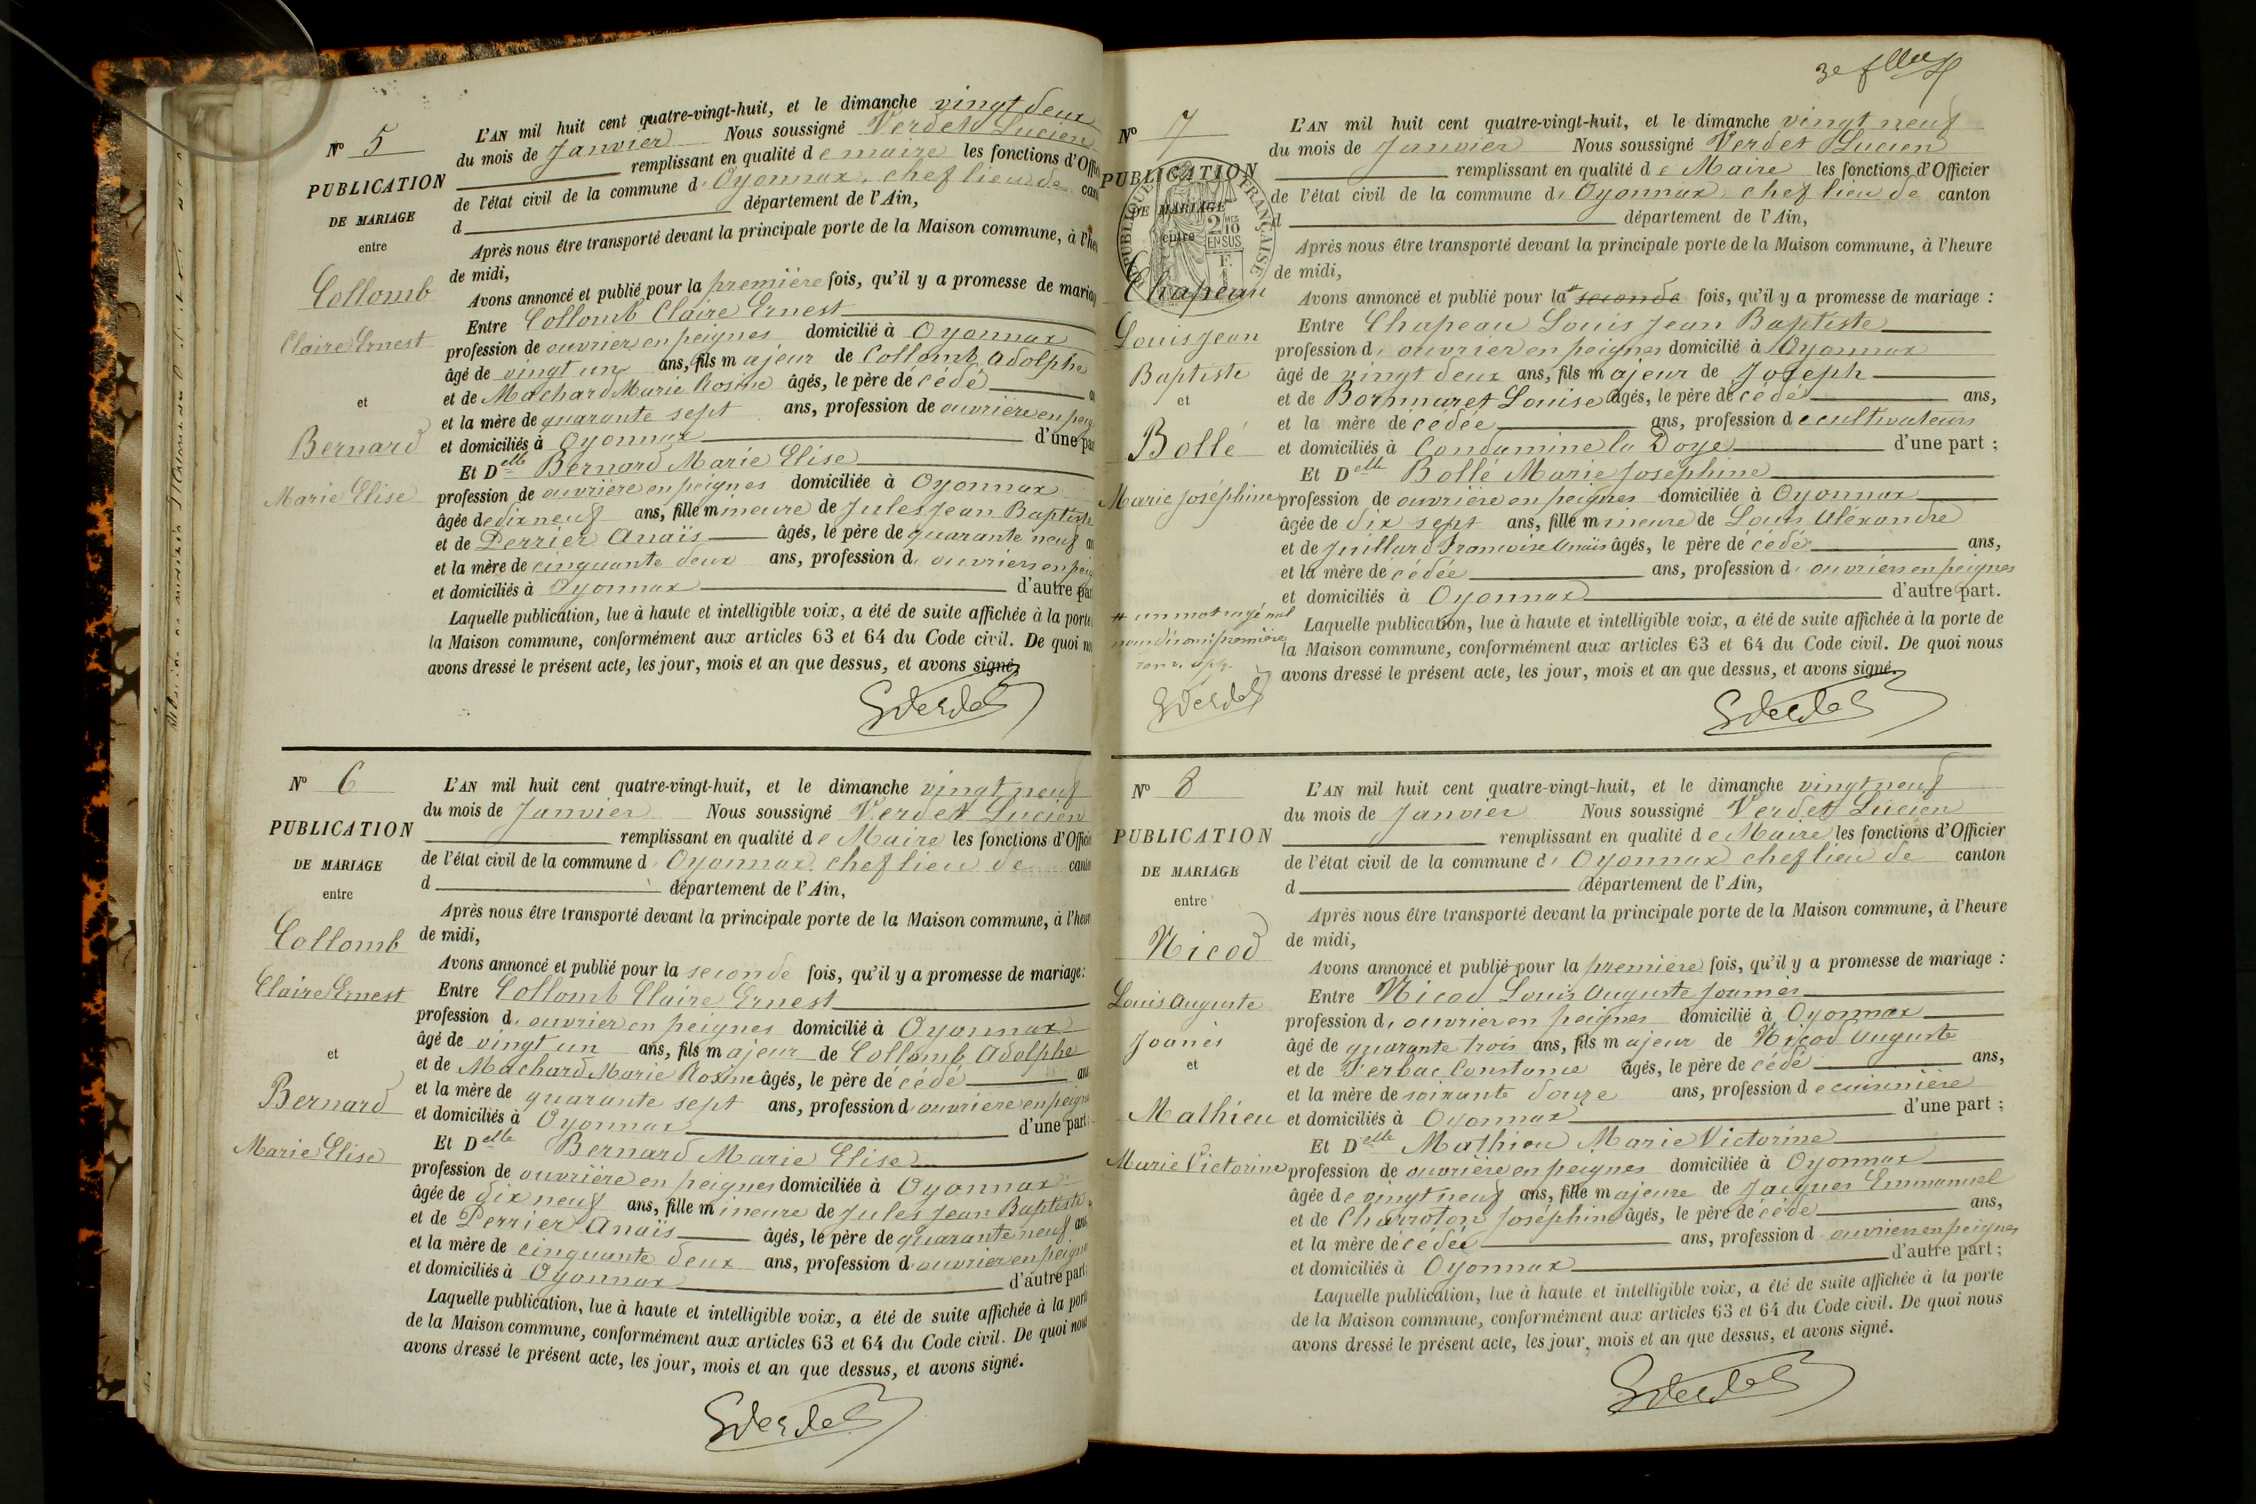 Nº 5
PUBLICATION
DE MARIAGE
entre
Collomb
Claire Ernest
et
Bernard
Marie Elise
L'AN mil huit cent quatre-vingt-huit, et le dimanche vingt deux
du mois de Janvier Nous soussigné Verdet Lucien
remplissant en qualité de maire les fonctions d'Offi
de l'état civil de la commune d' Oyonnax, chef lieu de can
d département de l'Ain,
Après nous être transporté devant la principale porte de la Maison commune, à l'he
de midi,
Avons annoncé et publié pour la première fois, qu'il y a promesse de mariag
Entre Collomb Claire Ernest
profession de ouvrier en peignes domicilié à Oyonnax
âgé de vingt un ans, fils majeur de Collomb Adolphe
et de Machard Marie Rosine âgés, le père décédé a
et la mère de quarante sept ans, profession de ouvrière en peig
et domiciliés à Oyonnax d'une par
Et Delle Bernard Marie Elise
profession de ouvrière en peignes domiciliée à Oyonnax
âgée de dix neuf ans, fille mineure de Jules Jean Baptiste
et de Perrier Anaïs âgés, le père de quarante neuf an
et la mère de cinquante deux ans, profession d' ouvriers en peig
et domiciliés à Oyonnax d'autre par
Laquelle publication, lue à haute et intelligible voix, a été de suite affichée à la porte
la Maison commune, conformément aux articles 63 et 64 du Code civil. De quoi no
avons dressé le présent acte, les jour, mois et an que dessus, et avons signé.
LVerdet
Nº 6
PUBLICATION
DE MARIAGE
entre
Collomb
Claire Ernest
et
Bernard
Marie Elise
L'AN mil huit cent quatre-vingt-huit, et le dimanche vingt neuf
du mois de Janvier Nous soussigné Verdet Lucien
remplissant en qualité de Maire les fonctions d'Offici
de l'état civil de la commune d' Oyonnax, chef lieu de canton
d département de l'Ain,
Après nous être transporté devant la principale porte de la Maison commune, à l'heur
de midi,
Avons annoncé et publié pour la seconde fois, qu'il y a promesse de mariage :
Entre Collomb Claire Ernest
profession d' ouvrier en peignes domicilié à Oyonnax
âgé de vingt un ans, fils majeur de Collomb Adolphe
et de Machard Marie Rosine âgés, le père décédé ans
et la mère de quarante sept ans, profession d' ouvrière en peigne
et domiciliés à Oyonnax d'une part
Et Delle Bernard Marie Elise
profession de ouvrière en peignes domiciliée à Oyonnax
âgée de dix neuf ans, fille mineure de Jules Jean Baptiste
et de Perrier Anaïs âgés, le père de quarante neuf ans
et la mère de cinquante deux ans, profession d' ouvrier en peigne
et domiciliés à Oyonnax d'autre part
Laquelle publication, lue à haute et intelligible voix, a été de suite affichée à la porte
de la Maison commune, conformément aux articles 63 et 64 du Code civil. De quoi nous
avons dressé le présent acte, les jour, mois et an que dessus, et avons signé.
LVerdet
3e
Nº 7
PUBLICATION
DE MARIAGE
entre
RÉPUBLIQUE FRANÇAISE
2/10 EN SUS
Chapeau
Louis Jean
Baptiste
et
Bollé
Marie Joséphine
L'AN mil huit cent quatre-vingt-huit, et le dimanche vingt neuf
du mois de Janvier Nous soussigné Verdet Lucien
remplissant en qualité de Maire les fonctions d'Officier
de l'état civil de la commune d' Oyonnax, chef lieu de canton
d département de l'Ain,
Après nous être transporté devant la principale porte de la Maison commune, à l'heure
de midi,
Avons annoncé et publié pour la # seconde fois, qu'il y a promesse de mariage :
Entre Chapeau Louis Jean Baptiste
profession d' ouvrier en peignes domicilié à Oyonnax
âgé de vingt deux ans, fils majeur de Joseph
et de Bornmaret Louise âgés, le père décédé ans,
et la mère décédée ans, profession de cultivateurs
et domiciliés à Condamine la Doye d'une part ;
Et Delle Bollé Marie Joséphine
profession de ouvrière en peignes domiciliée à Oyonnax
âgée de dix sept ans, fille mineure de Louis Aléxandre
et de Juillard Françoise Anaïs âgés, le père décédé ans,
et la mère décédée ans, profession d' ouvriers en peignes
et domiciliés à Oyonnax d'autre part.
Laquelle publication, lue à haute et intelligible voix, a été de suite affichée à la porte de
la Maison commune, conformément aux articles 63 et 64 du Code civil. De quoi nous
avons dressé le présent acte, les jour, mois et an que dessus, et avons signé.
# un mot rayé nul
nous disons première
LVerdet
LVerdet
Nº 8
PUBLICATION
DE MARIAGE
entre
Nicod
Louis Auguste
Joanès
et
Mathieu
Marie Victorine
L'AN mil huit cent quatre-vingt-huit, et le dimanche vingt neuf
du mois de Janvier Nous soussigné Verdet Lucien
remplissant en qualité de Maire les fonctions d'Officier
de l'état civil de la commune d' Oyonnax chef lieu de canton
d département de l'Ain,
Après nous être transporté devant la principale porte de la Maison commune, à l'heure
de midi,
Avons annoncé et publié pour la première fois, qu'il y a promesse de mariage :
Entre Nicod Louis Auguste Joannès
profession d' ouvrier en peignes domicilié à Oyonnax
âgé de quarante trois ans, fils majeur de Nicod Auguste
et de Constance âgés, le père décédé ans,
et la mère de soixante douze ans, profession de cuisinière
et domiciliés à Oyonnax d'une part ;
Et Delle Mathieu Marie Victorine
profession de ouvrière en peignes domiciliée à Oyonnax
âgée de vingt neuf ans, fille majeure de Jacques Emmanuel
et de Charroton Joséphine âgés, le père décédé ans,
et la mère décédée ans, profession d ouvriers en peignes
et domiciliés à Oyonnax d'autre part ;
Laquelle publication, lue à haute et intelligible voix, a été de suite affichée à la porte
de la Maison commune, conformément aux articles 63 et 64 du Code civil. De quoi nous
avons dressé le présent acte, les jour, mois et an que dessus, et avons signé.
LVerdet